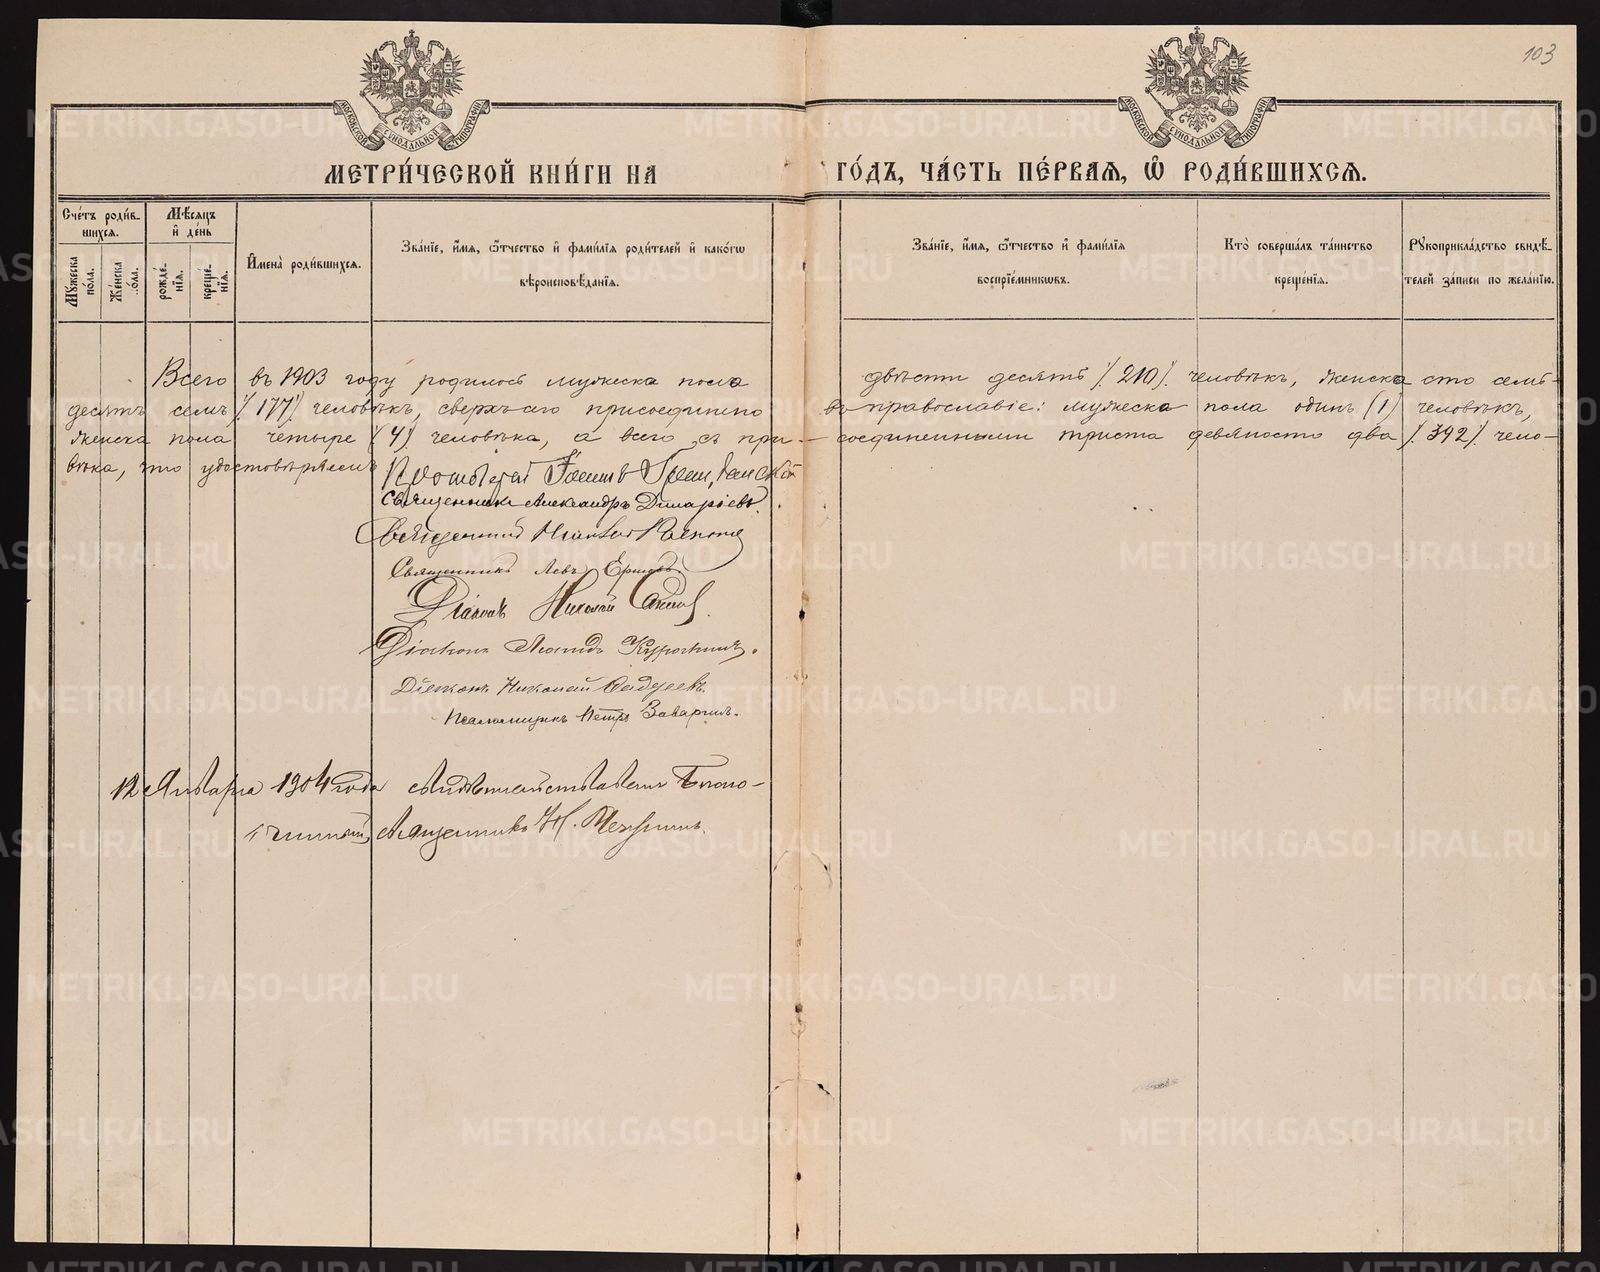 103
МОСКОВСКОЙ СѴНОДАЛЬНОЙ ТИПОГРАФІИ
МОСКОВСКОЙ СѴНОДАЛЬНОЙ ТИПОГРАФІИ
МЕТРИ́ЧЕСКОЙ КНИ́ГИ НА ГО́ДЪ, ЧА́СТЬ ПЕ́РВАЯ, Ѽ РОДИ́ВШИХСЯ.
Сче́тъ роди́в-
шихся.
Мужеска по́ла.
Же́нска по́ла.
Мѣ́сяцъ и де́нь
рожде́нїя.
креще́нїя.
Имена̀ роди́вшихся.
Зва́нїе, и́мя, ѻ́тчество и фами́лїя роди́телей и како́гѡ
вѣроисповѣ́данїя.
Зва́нїе, и́мя, ѻ́тчество и фами́лїя
воспрїе́мникѡвъ.
Кто̀ соверша́лъ та́инство
креще́нїя.
Рукоприкла́дство свидѣ́-
телей за́писи по жела́нїю.
Всего въ 1903 году родилось мужеска пола двѣсти десять /210/ человѣкъ, женска сто семь-
десятъ семь /177/ человѣкъ, сверхъ сего присоединено въ православіе: мужеска пола одинъ (1) человѣкъ,
женска пола четыре (4) человѣка, а всего съ при- соединенными триста девяносто два /392/ чело-
вѣка, что удостовѣряемъ Протоіерей
Священникъ Александръ
Священникъ
Священникъ Левъ Ершовъ
Діаконъ Николай
Діаконъ Леонидъ Курочкинъ.
Діаконъ Николай Фадѣевъ.
Псаломщикъ Петръ Заваринъ.
12 Января 1904 года свидѣтельствовалъ Благо-
чинный, Священникъ Н.